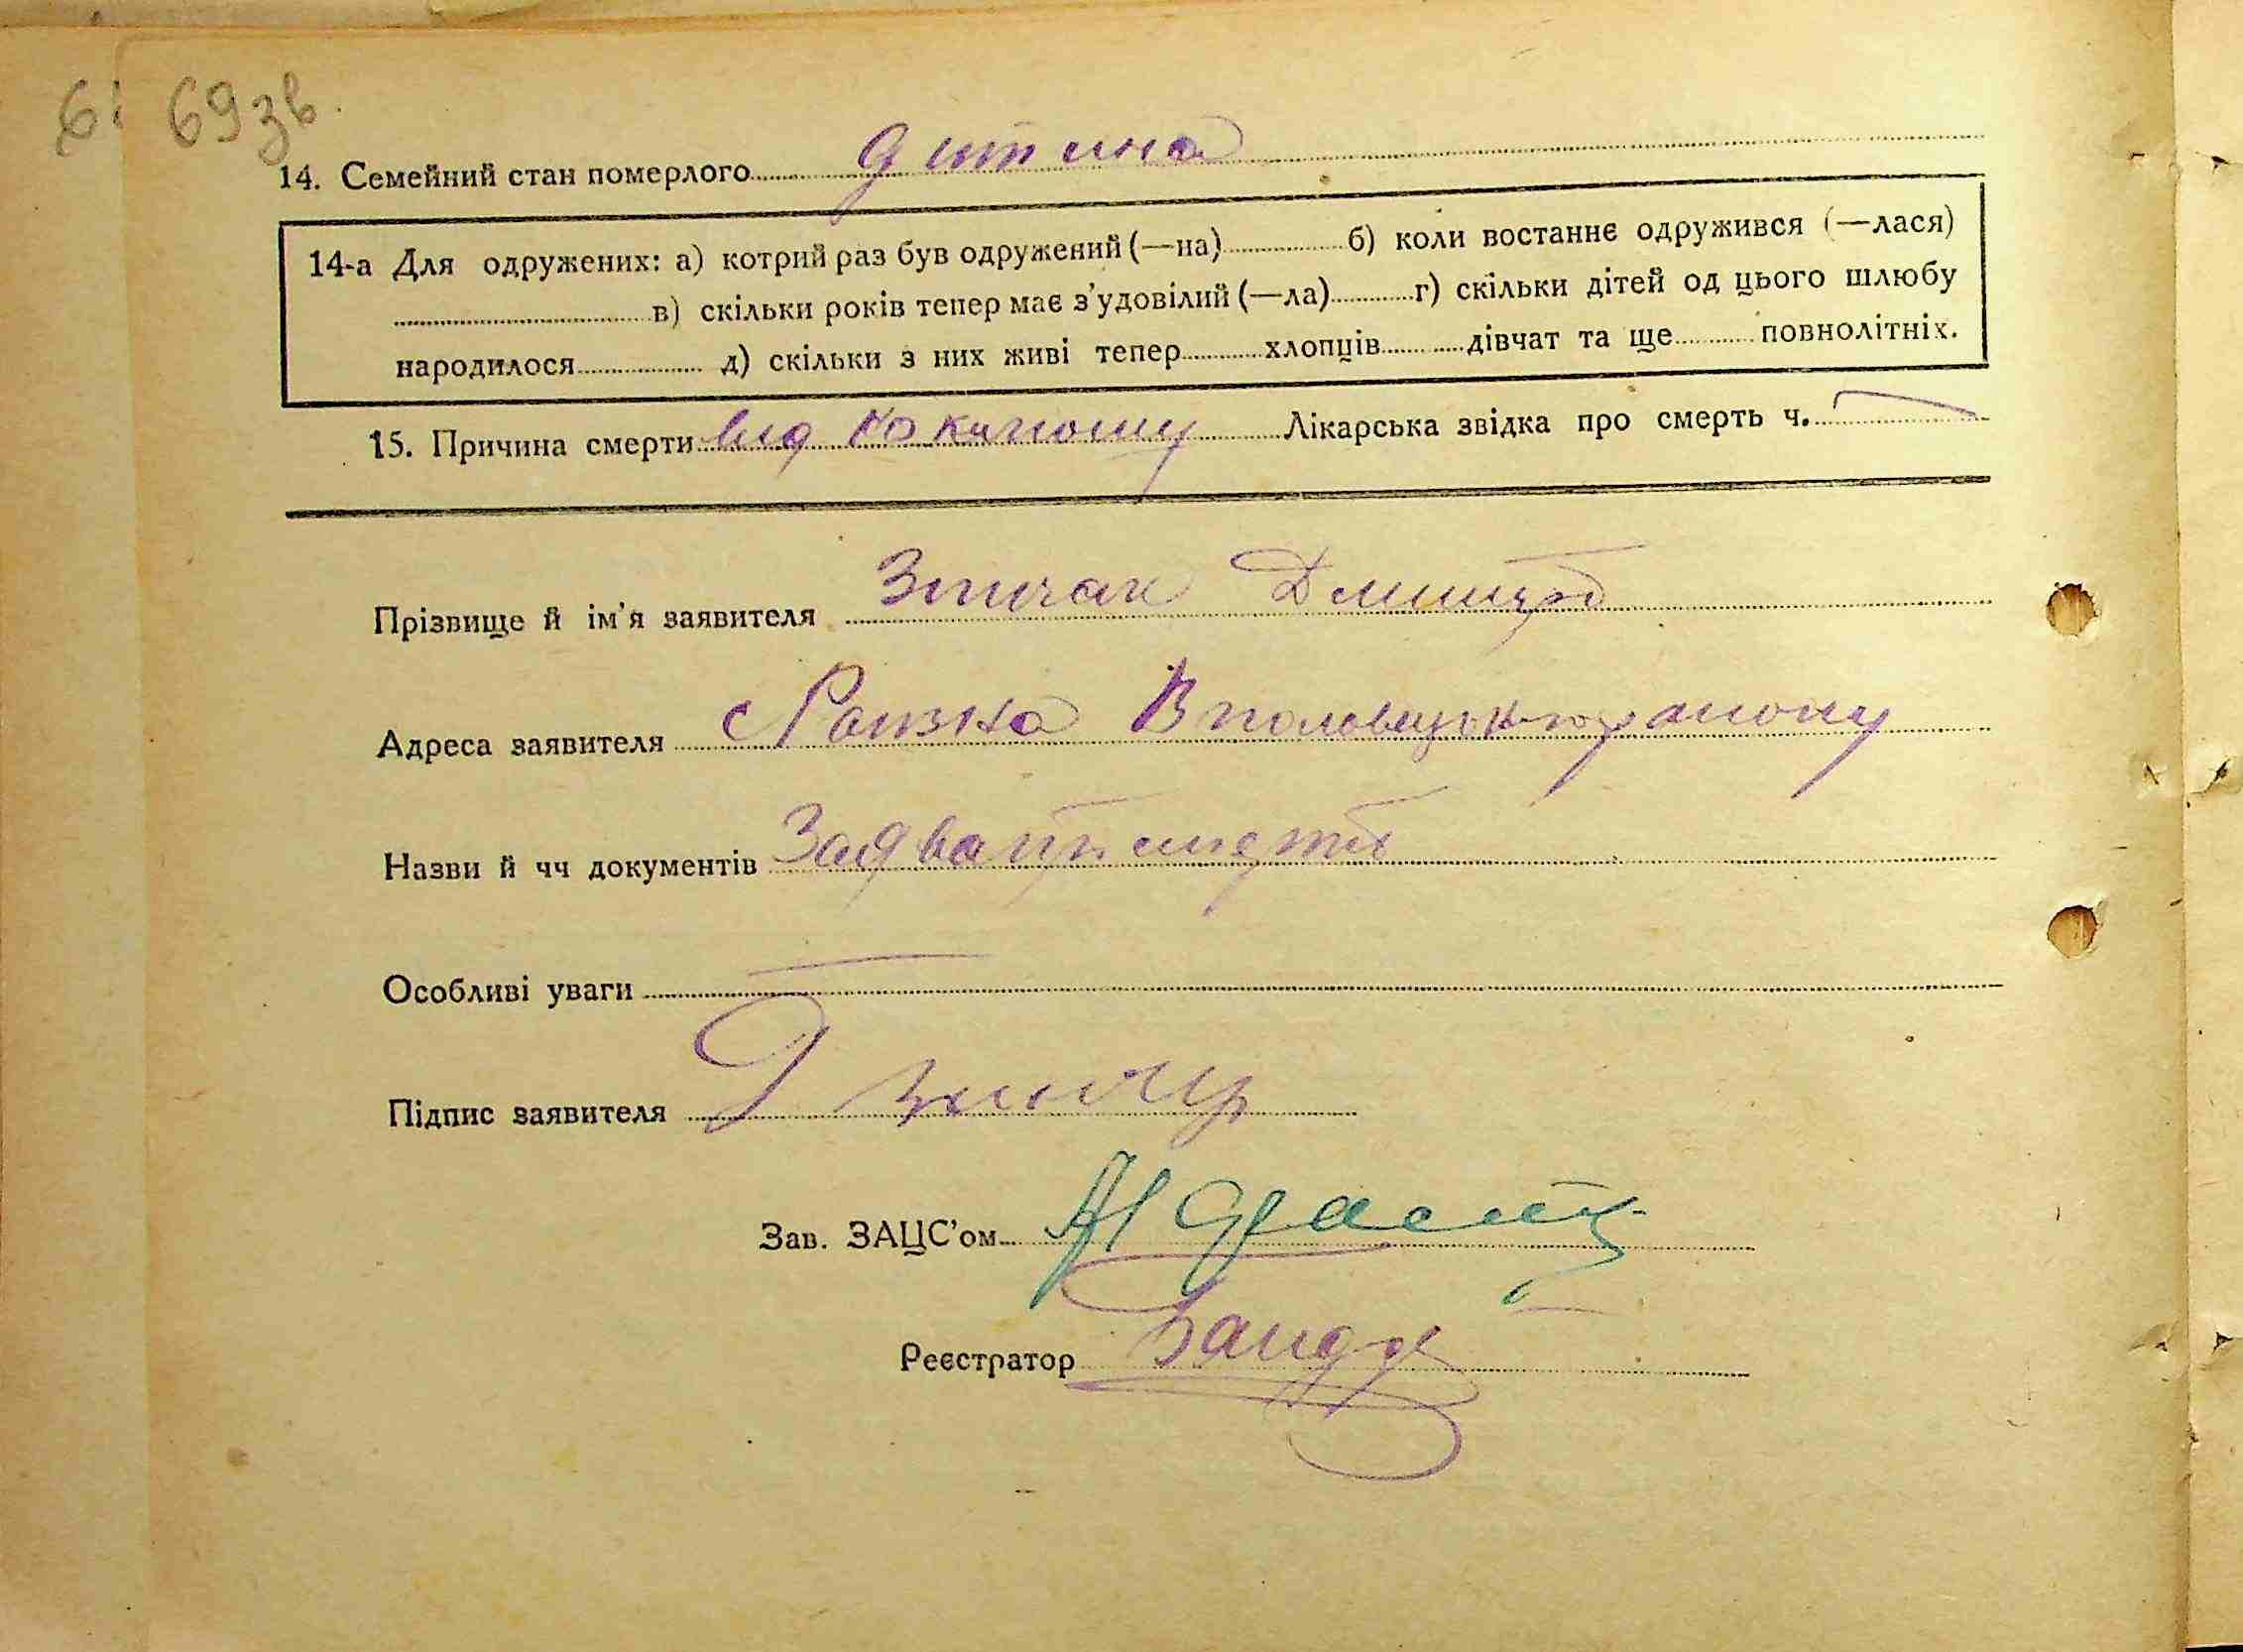 69 зв.
14. Семейний стан померлого дитина
14-а Для одружених: а) котрий раз був одружений (—на) б) коли востаннє одружився (—лася)
в) скільки років тепер має з'удовілий (—ла) г) скільки дітей од цього шлюбу
народилося д) скільки з них живі тепер хлопців дівчат та ще повнолітніх.
15. Причина смерти від Лікарська звідка про смерть ч.
Прізвище й ім'я заявителя Дмитро
Адреса заявителя с району
Назви й чч документів
Особливі уваги
Підпис заявителя
Зав. ЗАЦС'ом
Реєстратор